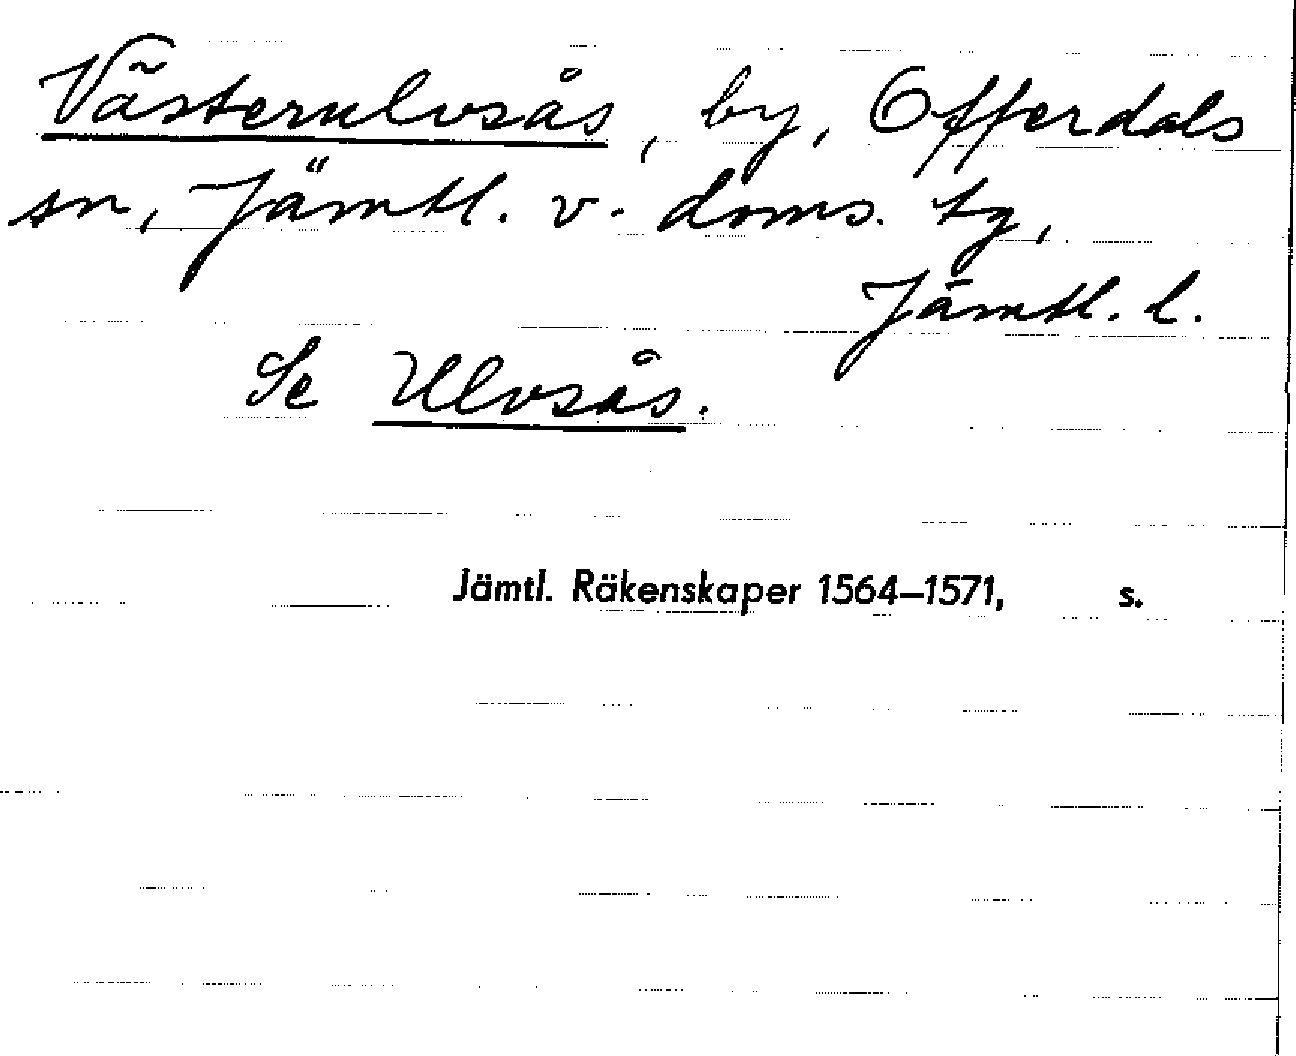 Västerulvsås, by, Offerdals
sn, Jämtl. v. doms. tg,
Jämtl. l.
Se Ulvsås.
Jämtl. Räkenskaper 1564–1571, s.